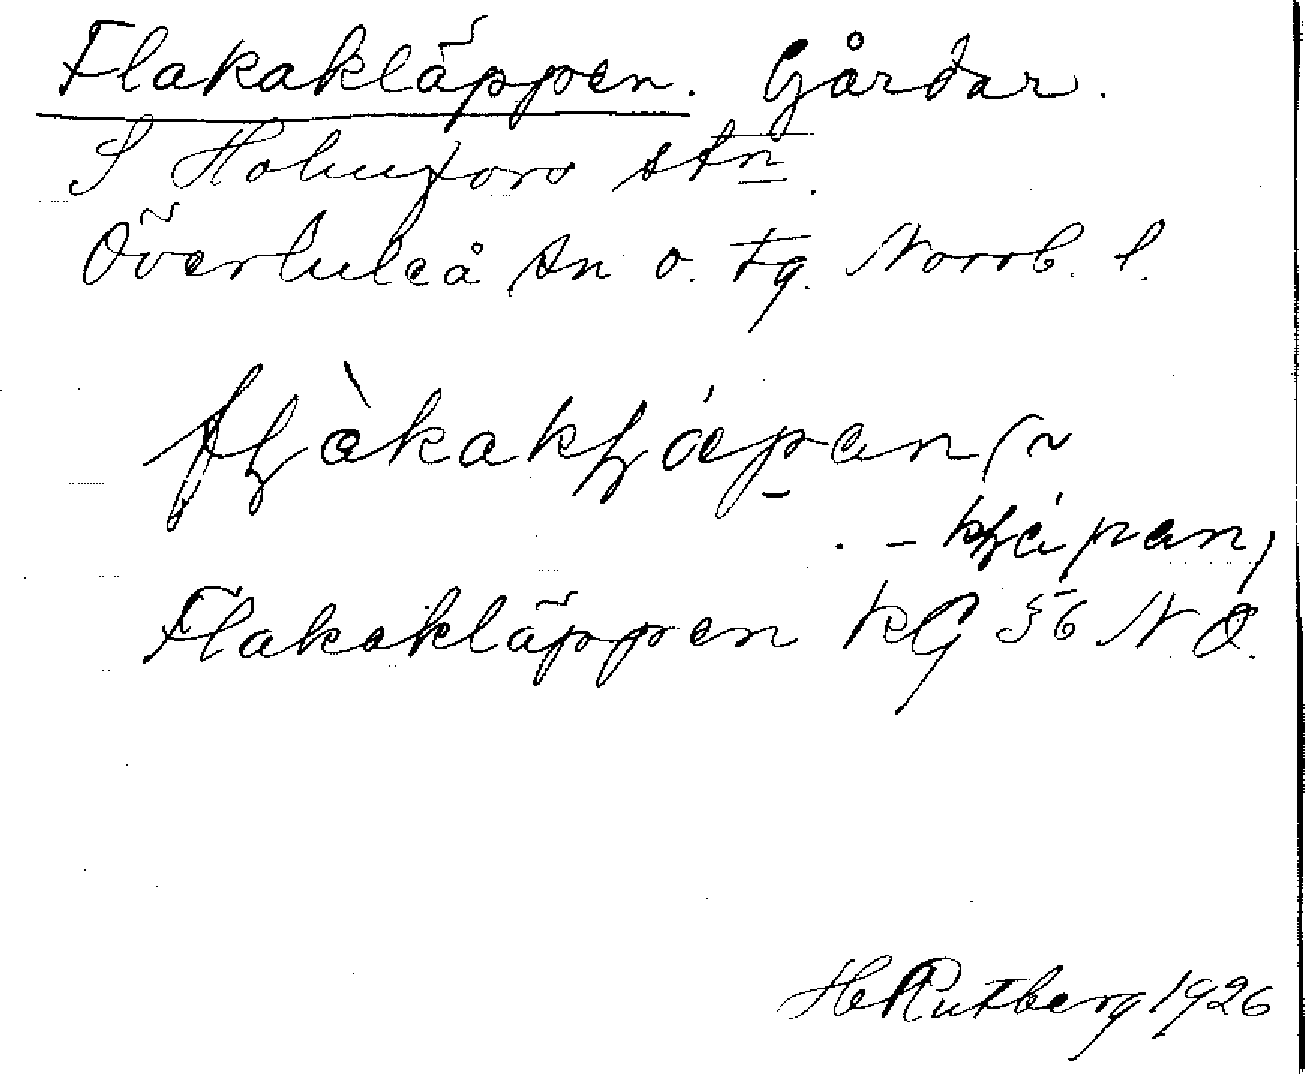 Flakakläppen. Gårdar.
S Holmfors stn.
Överluleå sn o. tg. Norrb. l.
Flakakläppen KG 56 N.O.
H Rutberg 1926